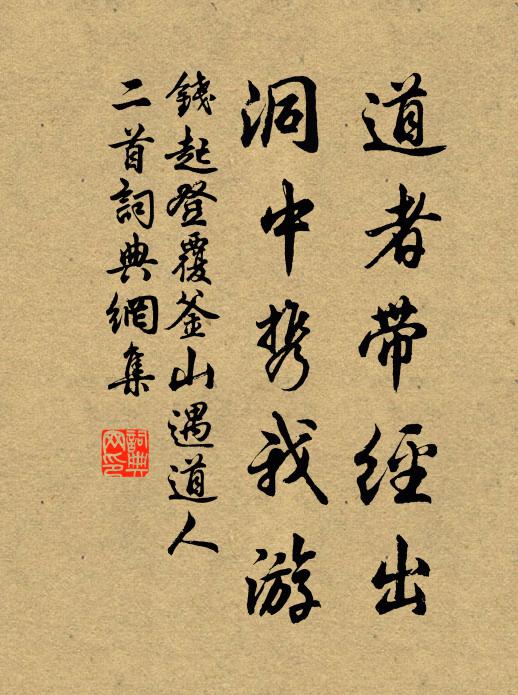 道者带經出
洞中携我游
錢起登覆釜山遇道人
二首詞典網集
詞典网印